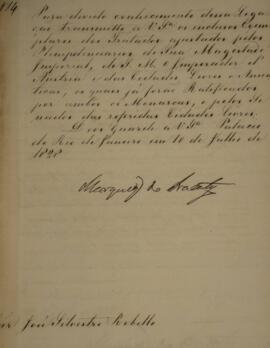 Para devido conhecimento dessa Lega
ção transmitto a V. Sª os inclusos Exem
plares dos Tratados ajustados pelos
Plenipotenciarios de Sua Magestade
Imperial, de S. M. O Imperador d'
Austria e das Cidades Livres e Ansea
ticas, os quaes já forão Ratificados
por ambos os Monarcas, e pelos Se
nados das referidas Cidades Livres.
Deos Guarde a V. Sª Palacio
do Rio de Janeiro em 10 de Julho de
1828
Marquez do Aracaty
José Silvestre Rebello